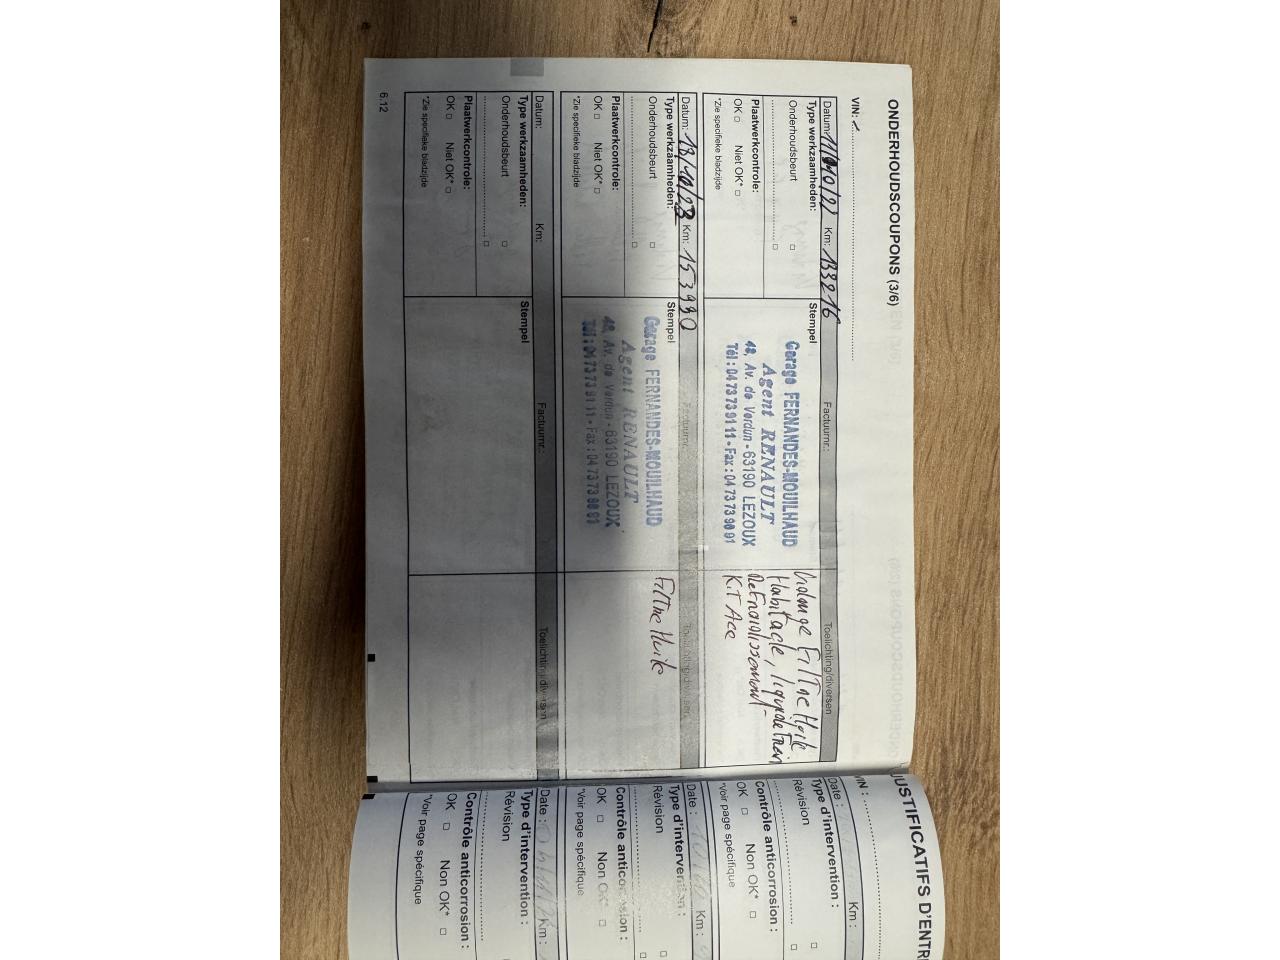 ONDERHOUDSCOUPONS (3/6)
VIN:
Datum: 11/10/22 Km: 133216 Factuurnr.: Toelichting/diversen
Type werkzaamheden:
Onderhoudsbeurt
Plaatwerkcontrole:
OK Niet OK*
*Zie specifieke bladzijde
Stempel
Garage FERNANDES-MOUILHAUD
Agent RENAULT
48, Av. de Verdun - 63190 LEZOUX
Tél : 04 73 73 91 11 - Fax : 04 73 73 98 91
Vidange Filtre Huile
Habitacle, liquide Frein
Refroidissement
KiT Acc
Datum: 13/10/23 Km: 153990 Factuurnr.: Toelichting/diversen
Type werkzaamheden:
Onderhoudsbeurt
Plaatwerkcontrole:
OK Niet OK*
*Zie specifieke bladzijde
Stempel
Garage FERNANDES-MOUILHAUD
Agent RENAULT
48, Av. de Verdun - 63190 LEZOUX
Tél : 04 73 73 91 11 - Fax : 04 73 73 98 91
Filtre Huile
Datum: Km: Factuurnr.: Toelichting/diversen
Type werkzaamheden:
Onderhoudsbeurt
Plaatwerkcontrole:
OK Niet OK*
*Zie specifieke bladzijde
Stempel
6.12
JUSTIFICATIFS D'ENTR
VIN :
Date : Km :
Type d'intervention :
Révision
Contrôle anticorrosion :
OK Non OK*
*Voir page spécifique
Date : Km :
Type d'intervention :
Révision
Contrôle anticorrosion :
OK Non OK*
*Voir page spécifique
Date : Km :
Type d'intervention :
Révision
Contrôle anticorrosion :
OK Non OK*
*Voir page spécifique